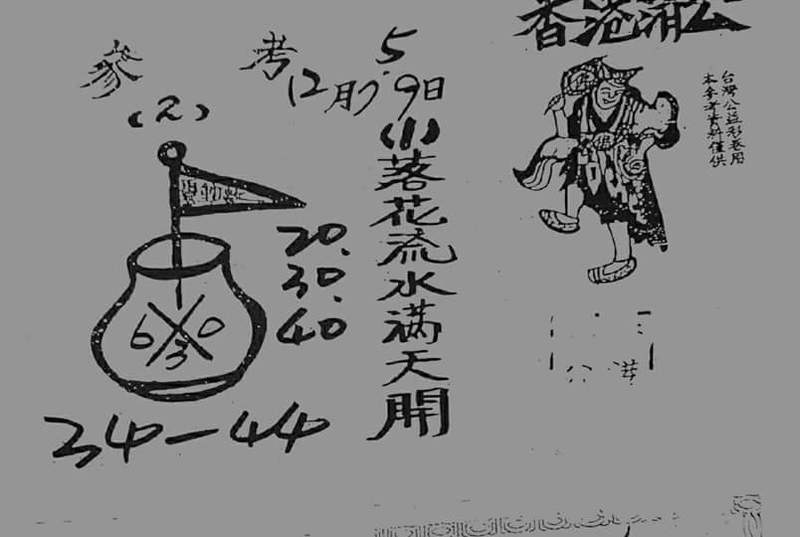 香港濟公
台灣公益彩卷用
本參考資料僅供
參考
5.
12月7.9日
(1)
落花流水满天開
(2)
20.
30.
40
6 X 0
3
34-44
公 港